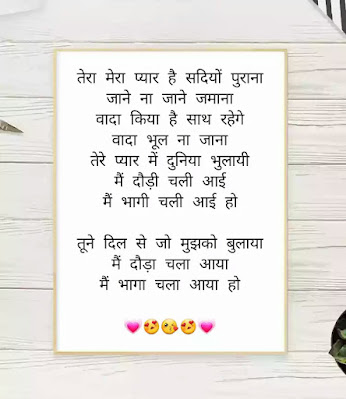 तेरा मेरा प्यार है सदियों पुराना
जाने ना जाने जमाना
वादा किया है साथ रहेगे
वादा भूल ना जाना
तेरे प्यार में दुनिया भुलायी
मैं दौड़ी चली आई
मैं भागी चली आई हो

तूने दिल से जो मुझको बुलाया
मैं दौड़ा चला आया
मैं भागा चला आया हो

💗😍😘😍💗